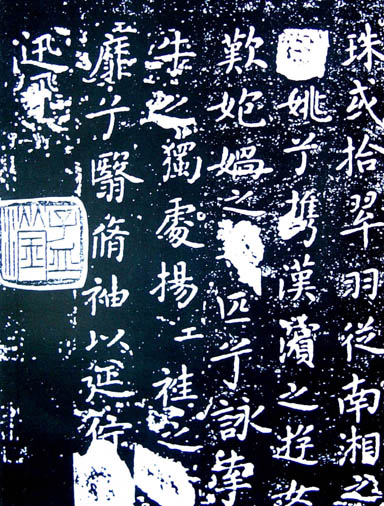 珠或拾翠羽從南湘之
姚兮攜漢濱之遊女
歎㚿媧之匹兮詠牽
牛之獨處揚袿之
靡兮翳脩袖以延佇
迅飛